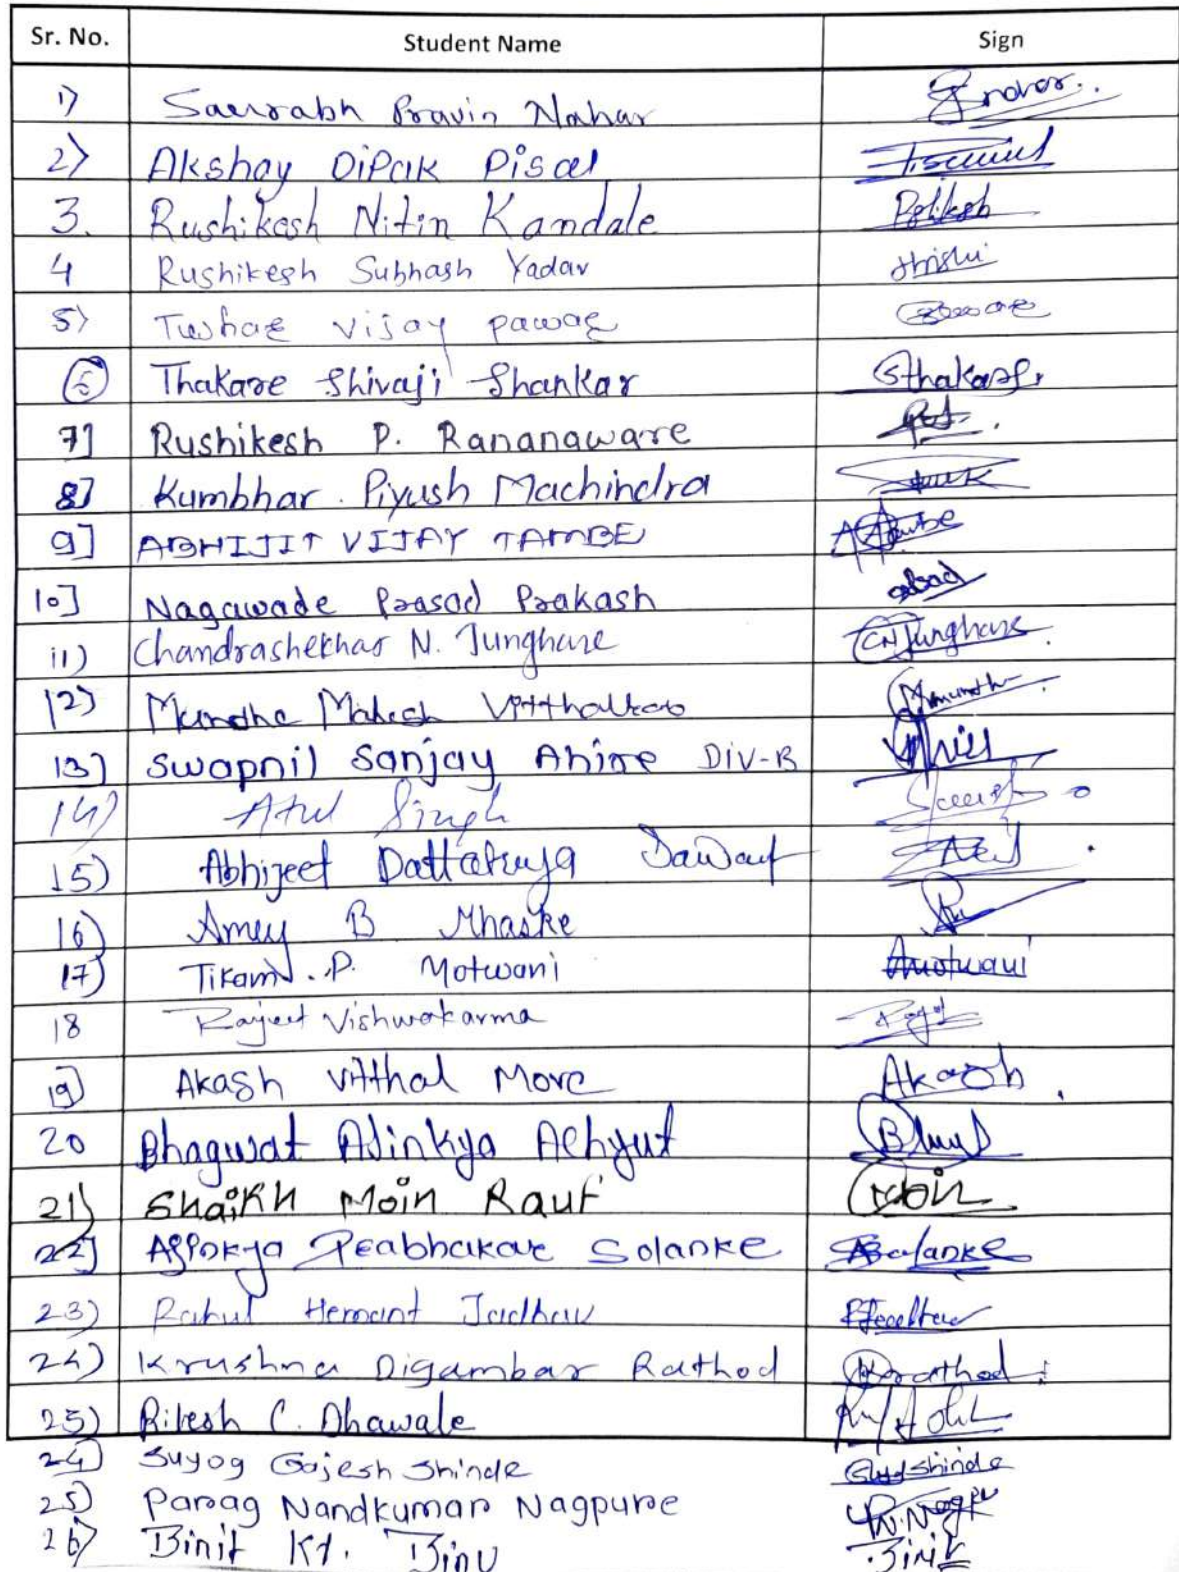 Sr. No. Student Name Sign
1) Saurabh Pravin Nahar
2) Akshay Dipak Pisal
3. Rushikesh Nitin Kandale
4 Rushikesh Subhash Yadav Hrishi
5) Tushar Vijay Pawar
6 Thakare Shivaji Shankar Sthakare
7] Rushikesh P. Rananaware
8] Kumbhar Piyush Machindra
9] ABHIJIT VIJAY TAMBE
10] Nagawade Prasad Prakash
11) Chandrashekhar N. Junghare CNJunghare
12) Mundhe Mahesh Vitthalrao
13) Swapnil Sanjay Ahire DIV-B
14) Atul Singh
15) Abhijeet Dattatraya Sawant
16) Amey B Mhaske
17) Tikam . P. Motwani Amotwani
18 Ranjeet Vishwakarma
19] Akash Vitthal More Akash
20 Bhagwat Ajinkya Achyut
21) Shaikh Moin Rauf Moin
22] Ajinkya Prabhakar Solanke Asolanke
23) Rahul Hemant Jadhav
24) Krushna Digambar Rathod Krathod
25) Ritesh C. Dhawale
24) Suyog Gajesh Shinde
25) Parag Nandkumar Nagpure
26) Binit Kr. Binu Binit